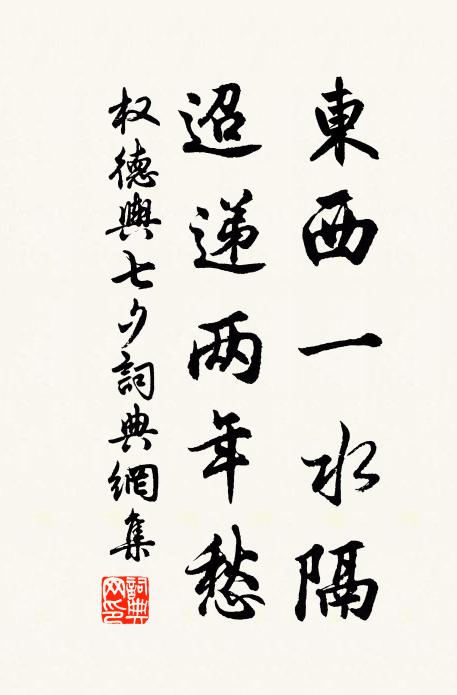 東西一水隔
迢递两年愁
权德輿七夕詞典網集
詞典網印